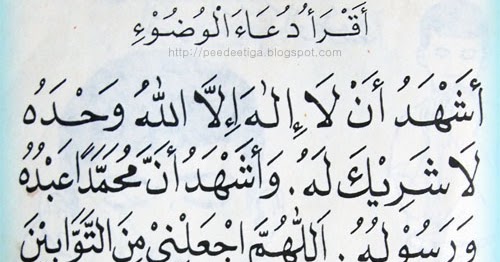 أَقْرَأُ دُعَاءَ الْوُضُوْءِ
http://peedeetiga.blogspot.com
أَشْهَدُ أَنْ لَا إِلٰهَ إِلَّا اللهُ وَحْدَهُ
لَا شَرِيْكَ لَهُ. وَأَشْهَدُ أَنَّ مُحَمَّدًا عَبْدُهُ
وَرَسُوْلُهُ. اَللّٰهُمَّ اجْعَلْنِيْ مِنَ التَّوَّابِيْنَ